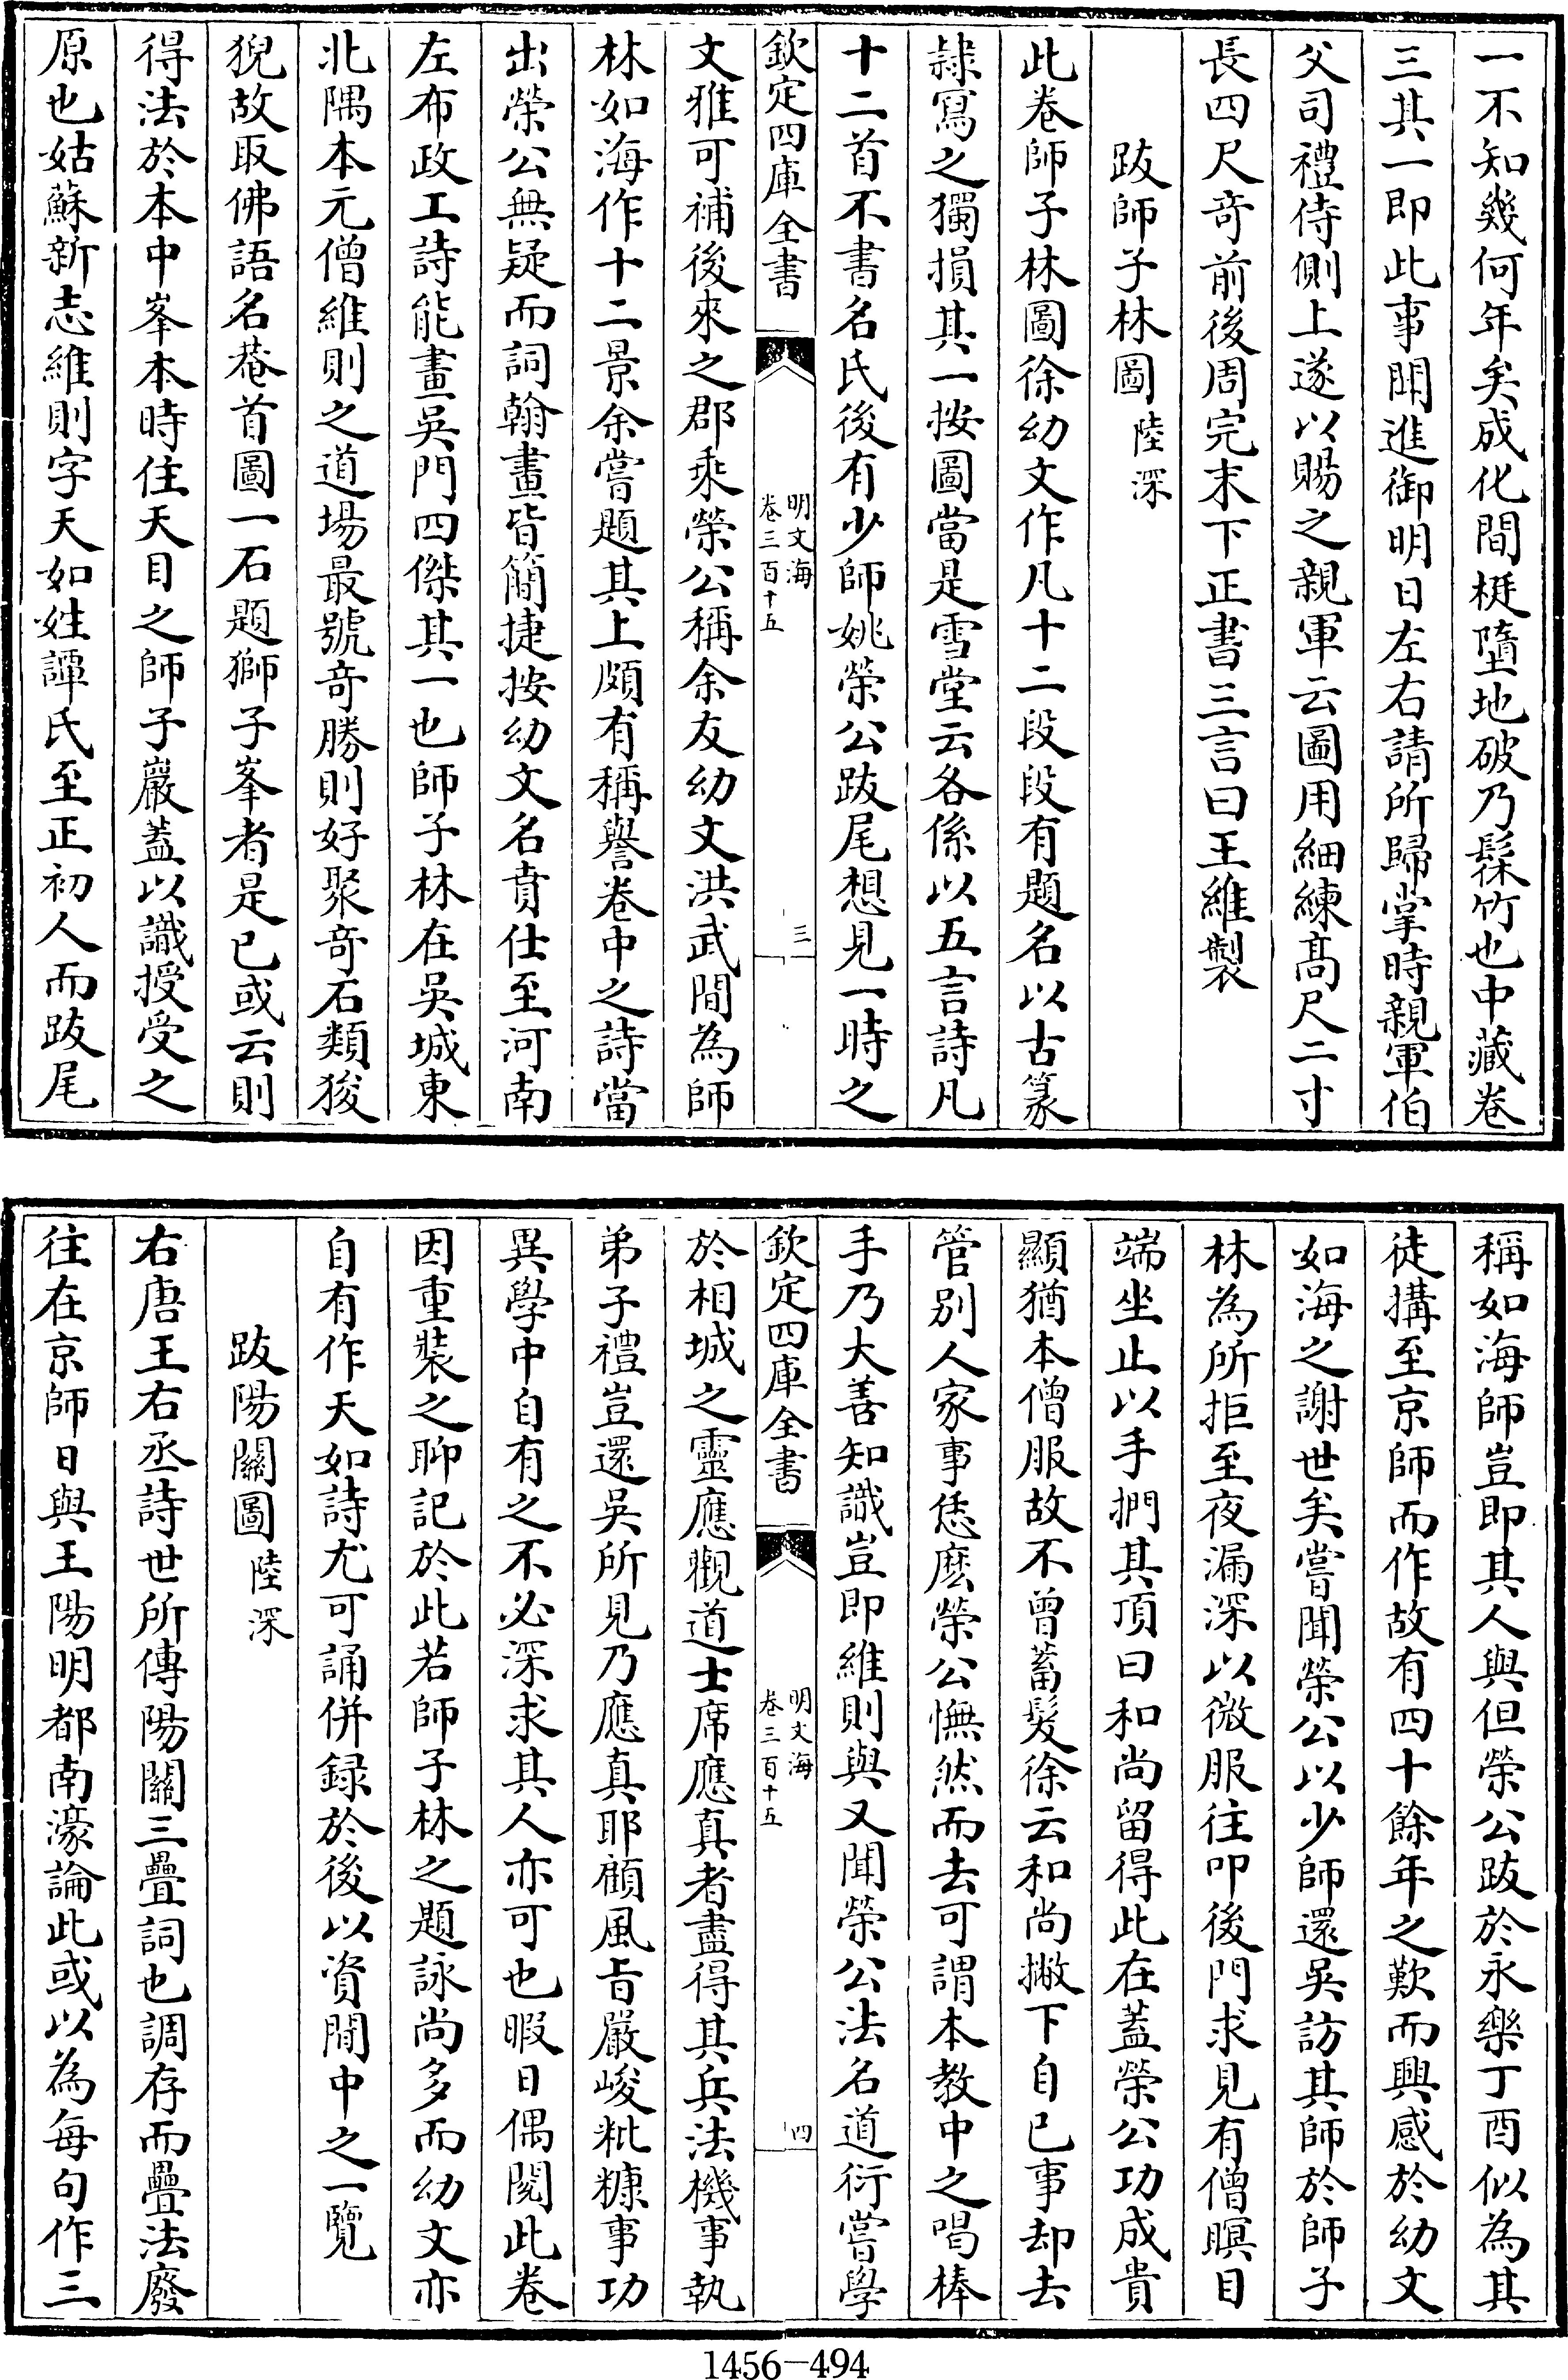 一不知幾何年矣成化間梃墮地破乃髹竹也中藏卷
三其一即此事聞進御明日左右請所歸掌時親軍伯
父司禮侍側上遂以賜之親軍云圖用細練髙尺二寸
長四尺奇前後周完末下正書三言曰王維製
跋師子林圖 陸深
此卷師子林圖徐幼文作凡十二段段有題名以古篆
隸寫之獨損其一按圖當是雪堂云各係以五言詩凡
十二首不書名氏後有少師姚榮公跋尾想見一時之
欽定四庫全書
明文海
卷三百十五
三
文雅可補後來之郡乘榮公稱余友幼文洪武間為師
林如海作十二景余嘗題其上頗有稱譽卷中之詩當
出榮公無疑而詞翰畫皆簡捷按幼文名賁仕至河南
左布政工詩能畫吳門四傑其一也師子林在吳城東
北隅本元僧維則之道場最號奇勝則好聚奇石類狻
猊故取佛語名菴首圖一石題獅子峯者是已或云則
得法於本中峯本時住天目之師子巖蓋以識授受之
原也姑蘇新志維則字天如姓譚氏至正初人而跋尾
稱如海師豈即其人與但榮公跋於永樂丁酉似為其
徒搆至京師而作故有四十餘年之歎而興感於幼文
如海之謝世矣嘗聞榮公以少師還吳訪其師於師子
林為所拒至夜漏深以微服往叩後門求見有僧瞑目
端坐止以手捫其頂曰和尚留得此在蓋榮公功成貴
顯猶本僧服故不曾蓄髮徐云和尚撇下自已事却去
管别人家事恁麽榮公憮然而去可謂本教中之喝棒
手乃大善知識豈即維則與又聞榮公法名道衍嘗學
欽定四庫全書
明文海
卷三百十五
四
於相城之靈應觀道士席應真者盡得其兵法機事執
弟子禮豈還吳所見乃應真耶顧風旨嚴峻粃糠事功
異學中自有之不必深求其人亦可也暇日偶閱此卷
因重裝之聊記於此若師子林之題詠尚多而幼文亦
自有作天如詩尤可誦併録於後以資閒中之一覽
跋陽關圖 陸深
右唐王右丞詩世所傳陽關三疊詞也調存而疊法廢
往在京師日與王陽明都南濠論此或以為每句作三
1456-494